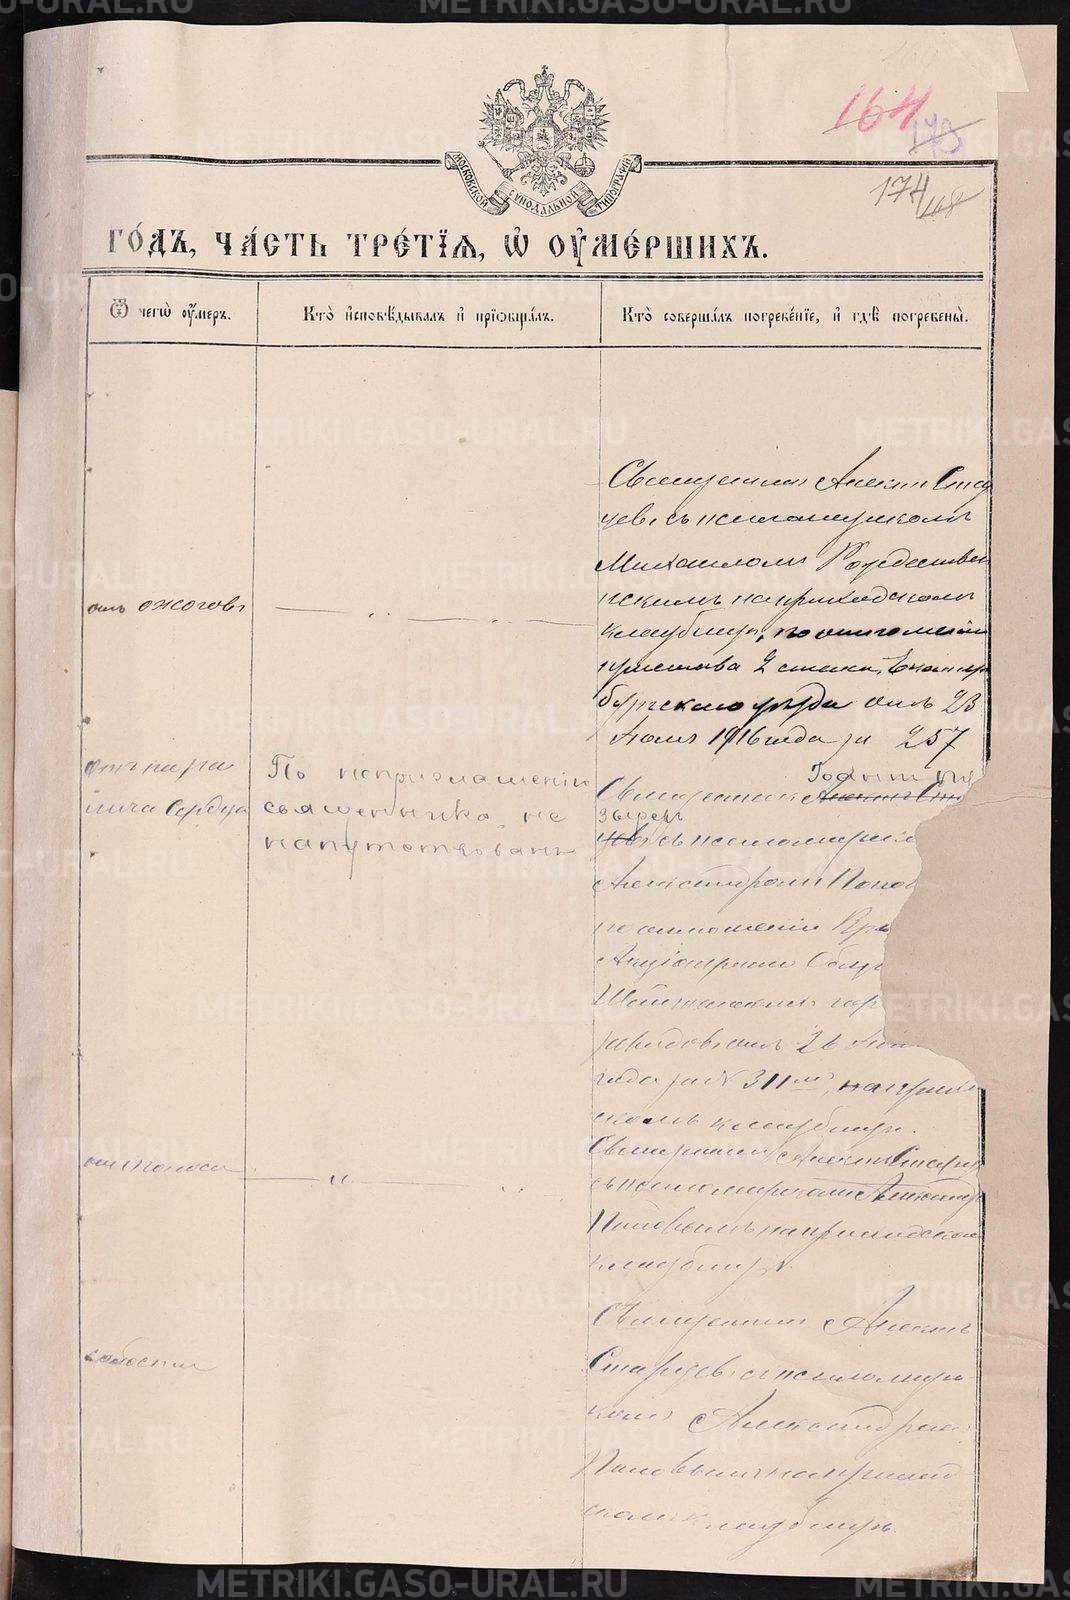 164
173
174/168
МОСКОВСКОЙ СѴНОДАЛЬНОЙ ТИПОГРАФІИ
ГО́ДЪ, ЧА́СТЬ ТРЕ́ТІѦ, Ѡ҆ ОУ҆МЕ́РШИХЪ.
Ѿ чегѡ̀ оу҆́меръ.
Кто̀ и҆сповѣ́дывалъ и҆ прїѡбща́лъ.
Кто̀ соверша́лъ погребе́нїе, и҆ гдѣ̀ погребены̀.
отъ ожоговъ
Священникъ Алексѣй Стар
цевъ съ псаломщикомъ
Михаиломъ Рождествен
скимъ на приходскомъ
кладбищѣ, по отношенію
пристава 2 стана Екатерин
бургскаго уѣзда отъ 23
Іюля 1916 года за 257
отъ пара
лича сердца
По неприглашенію
священника не
напутствованъ
Священникъ Алексѣй Стар
цевъ съ псаломщико
Александромъ Попов
по отношенію
Акціонернаго Общ
заводовъ отъ 26
года за № 311, на приход
скомъ кладбищѣ.
отъ поноса
Священникъ Алексѣй Старцевъ
съ псаломщикомъ Александр
Поповымъ на приходском
кладбищѣ.
слабости
Священникъ Алексѣй
Старцевъ съ псаломщи
комъ Александром
Поповымъ на приход
скомъ кладбищѣ.
METRIKI.GASO-URAL.RU